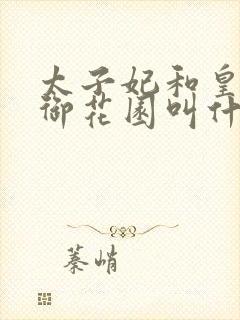 太子妃和皇
御花园叫什
蓁峭